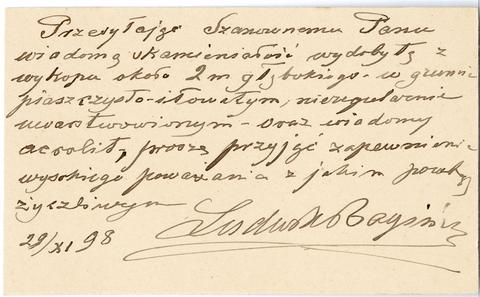 Przesyłając Szanownemu Panu
wiadomą skamieniałość wydobytą z
wykopu około 2 m głębokiego - w gruncie
piaszczysto-iłowatym, nieregularnie
uwarstwowionym - oraz wiadomy
aerolit, proszę przyjąć zapewnienie
wysokiego poważania z jakim
życzliwym
29/XI 98